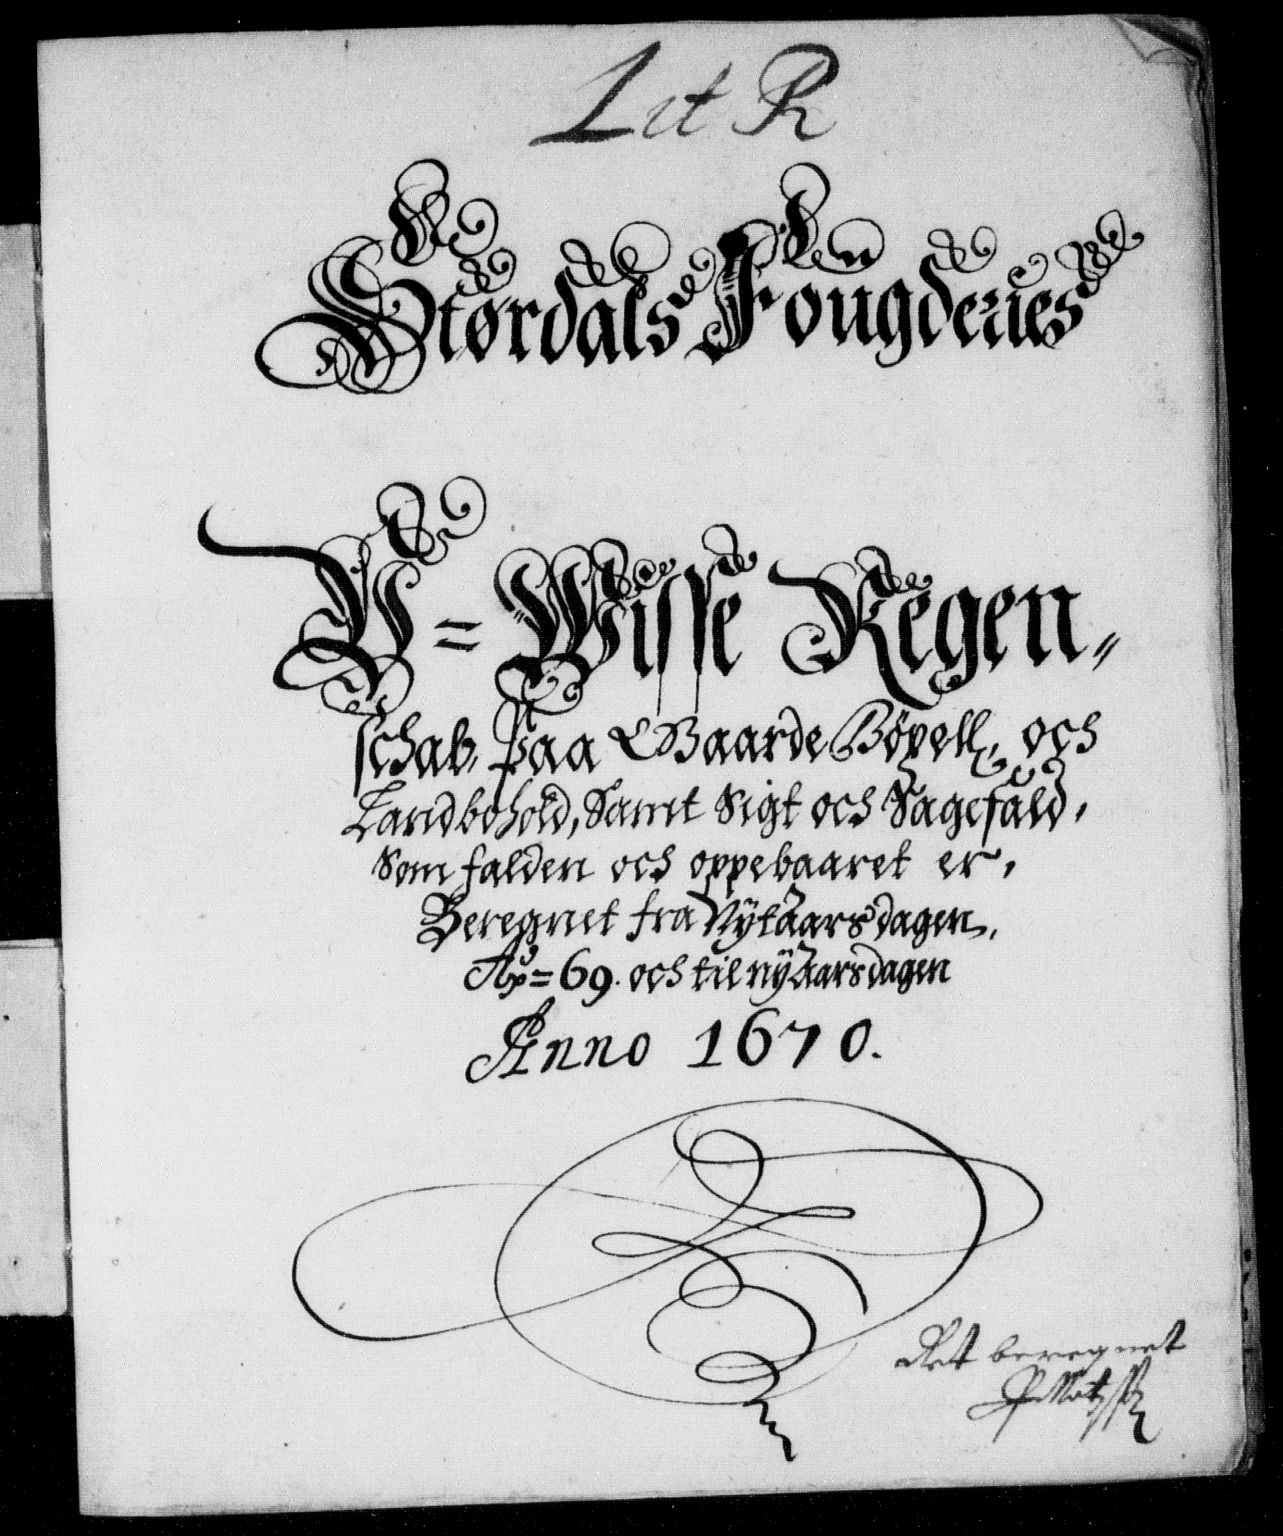 Lit R
Størdals Fougderies
V= Wisse Regen„
schab, paa Gaarde Bøxell, och
Landbohold, Samt Sigt och Sagefald,
Som falden och oppebaaret er,
Beregnet fra Nÿtaarsdagen,
Ao= 69. och til nÿAarsdagen
Anno 1670.
Ret beregnet